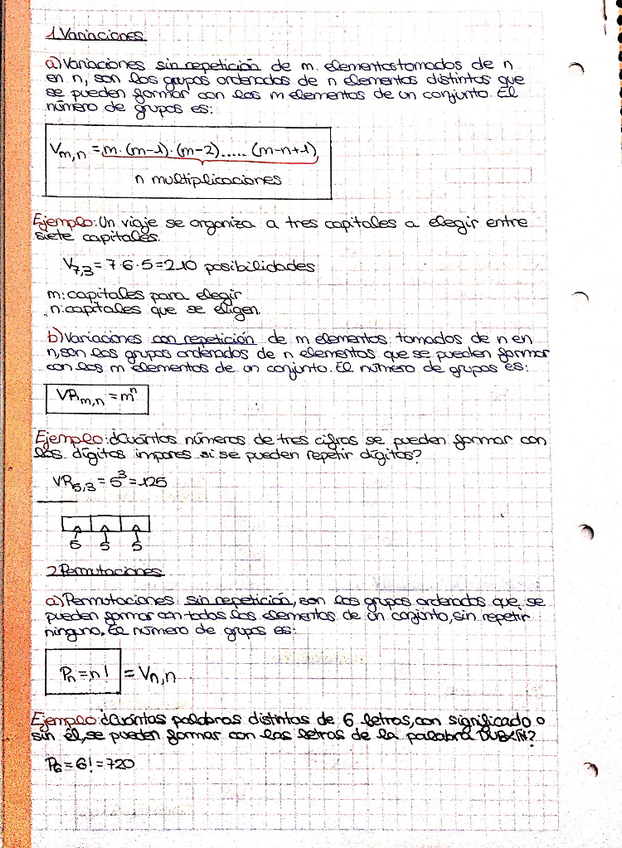 1. Variaciones
a) Variaciones sin repetición de m elementos tomados de n
en n, son los grupos ordenados de n elementos distintos que
se pueden formar con los m elementos de un conjunto. El
número de grupos es:
Vm,n = m·(m-1)·(m-2).....(m-n+1)
n multiplicaciones
Ejemplo: Un viaje se organiza a tres capitales a elegir entre
siete capitales.
V7,3 = 7·6·5 = 210 posibilidades
m: capitales para elegir
n: capitales que se eligen
b) Variaciones con repetición de m elementos tomados de n en
n, son los grupos ordenados de n elementos que se pueden formar
con los m elementos de un conjunto. El número de grupos es:
VRm,n = mⁿ
Ejemplo: ¿Cuántos números de tres cifras se pueden formar con
los dígitos impares si se pueden repetir dígitos?
VR5,3 = 5³ = 125
5 5 5
2. Permutaciones
a) Permutaciones sin repetición, son los grupos ordenados que se
pueden formar con todos los elementos de un conjunto, sin repetir
ninguno. El número de grupos es:
Pn = n! = Vn,n
Ejemplo: ¿Cuántas palabras distintas de 6 letras, con significado o
sin él, se pueden formar con las letras de la palabra DUBLÍN?
P6 = 6! = 720